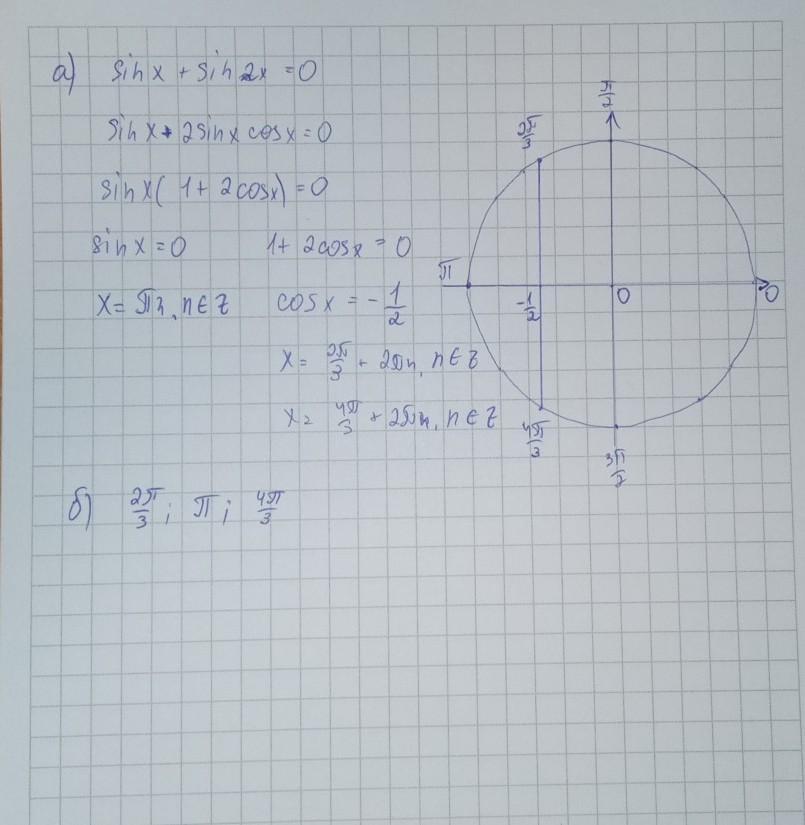 а) sin x + sin 2x = 0
sin x + 2 sin x cos x = 0
sin x ( 1 + 2cos x) = 0
sin x = 0 1 + 2cos x = 0
x = πn, n ∈ Z cos x = - 1/2
x = 2π/3 + 2πn, n ∈ Z
x = 4π/3 + 2πn, n ∈ Z
б) 2π/3 ; π ; 4π/3
π/2
2π/3
π
-1/2
0
0
4π/3
3π/2